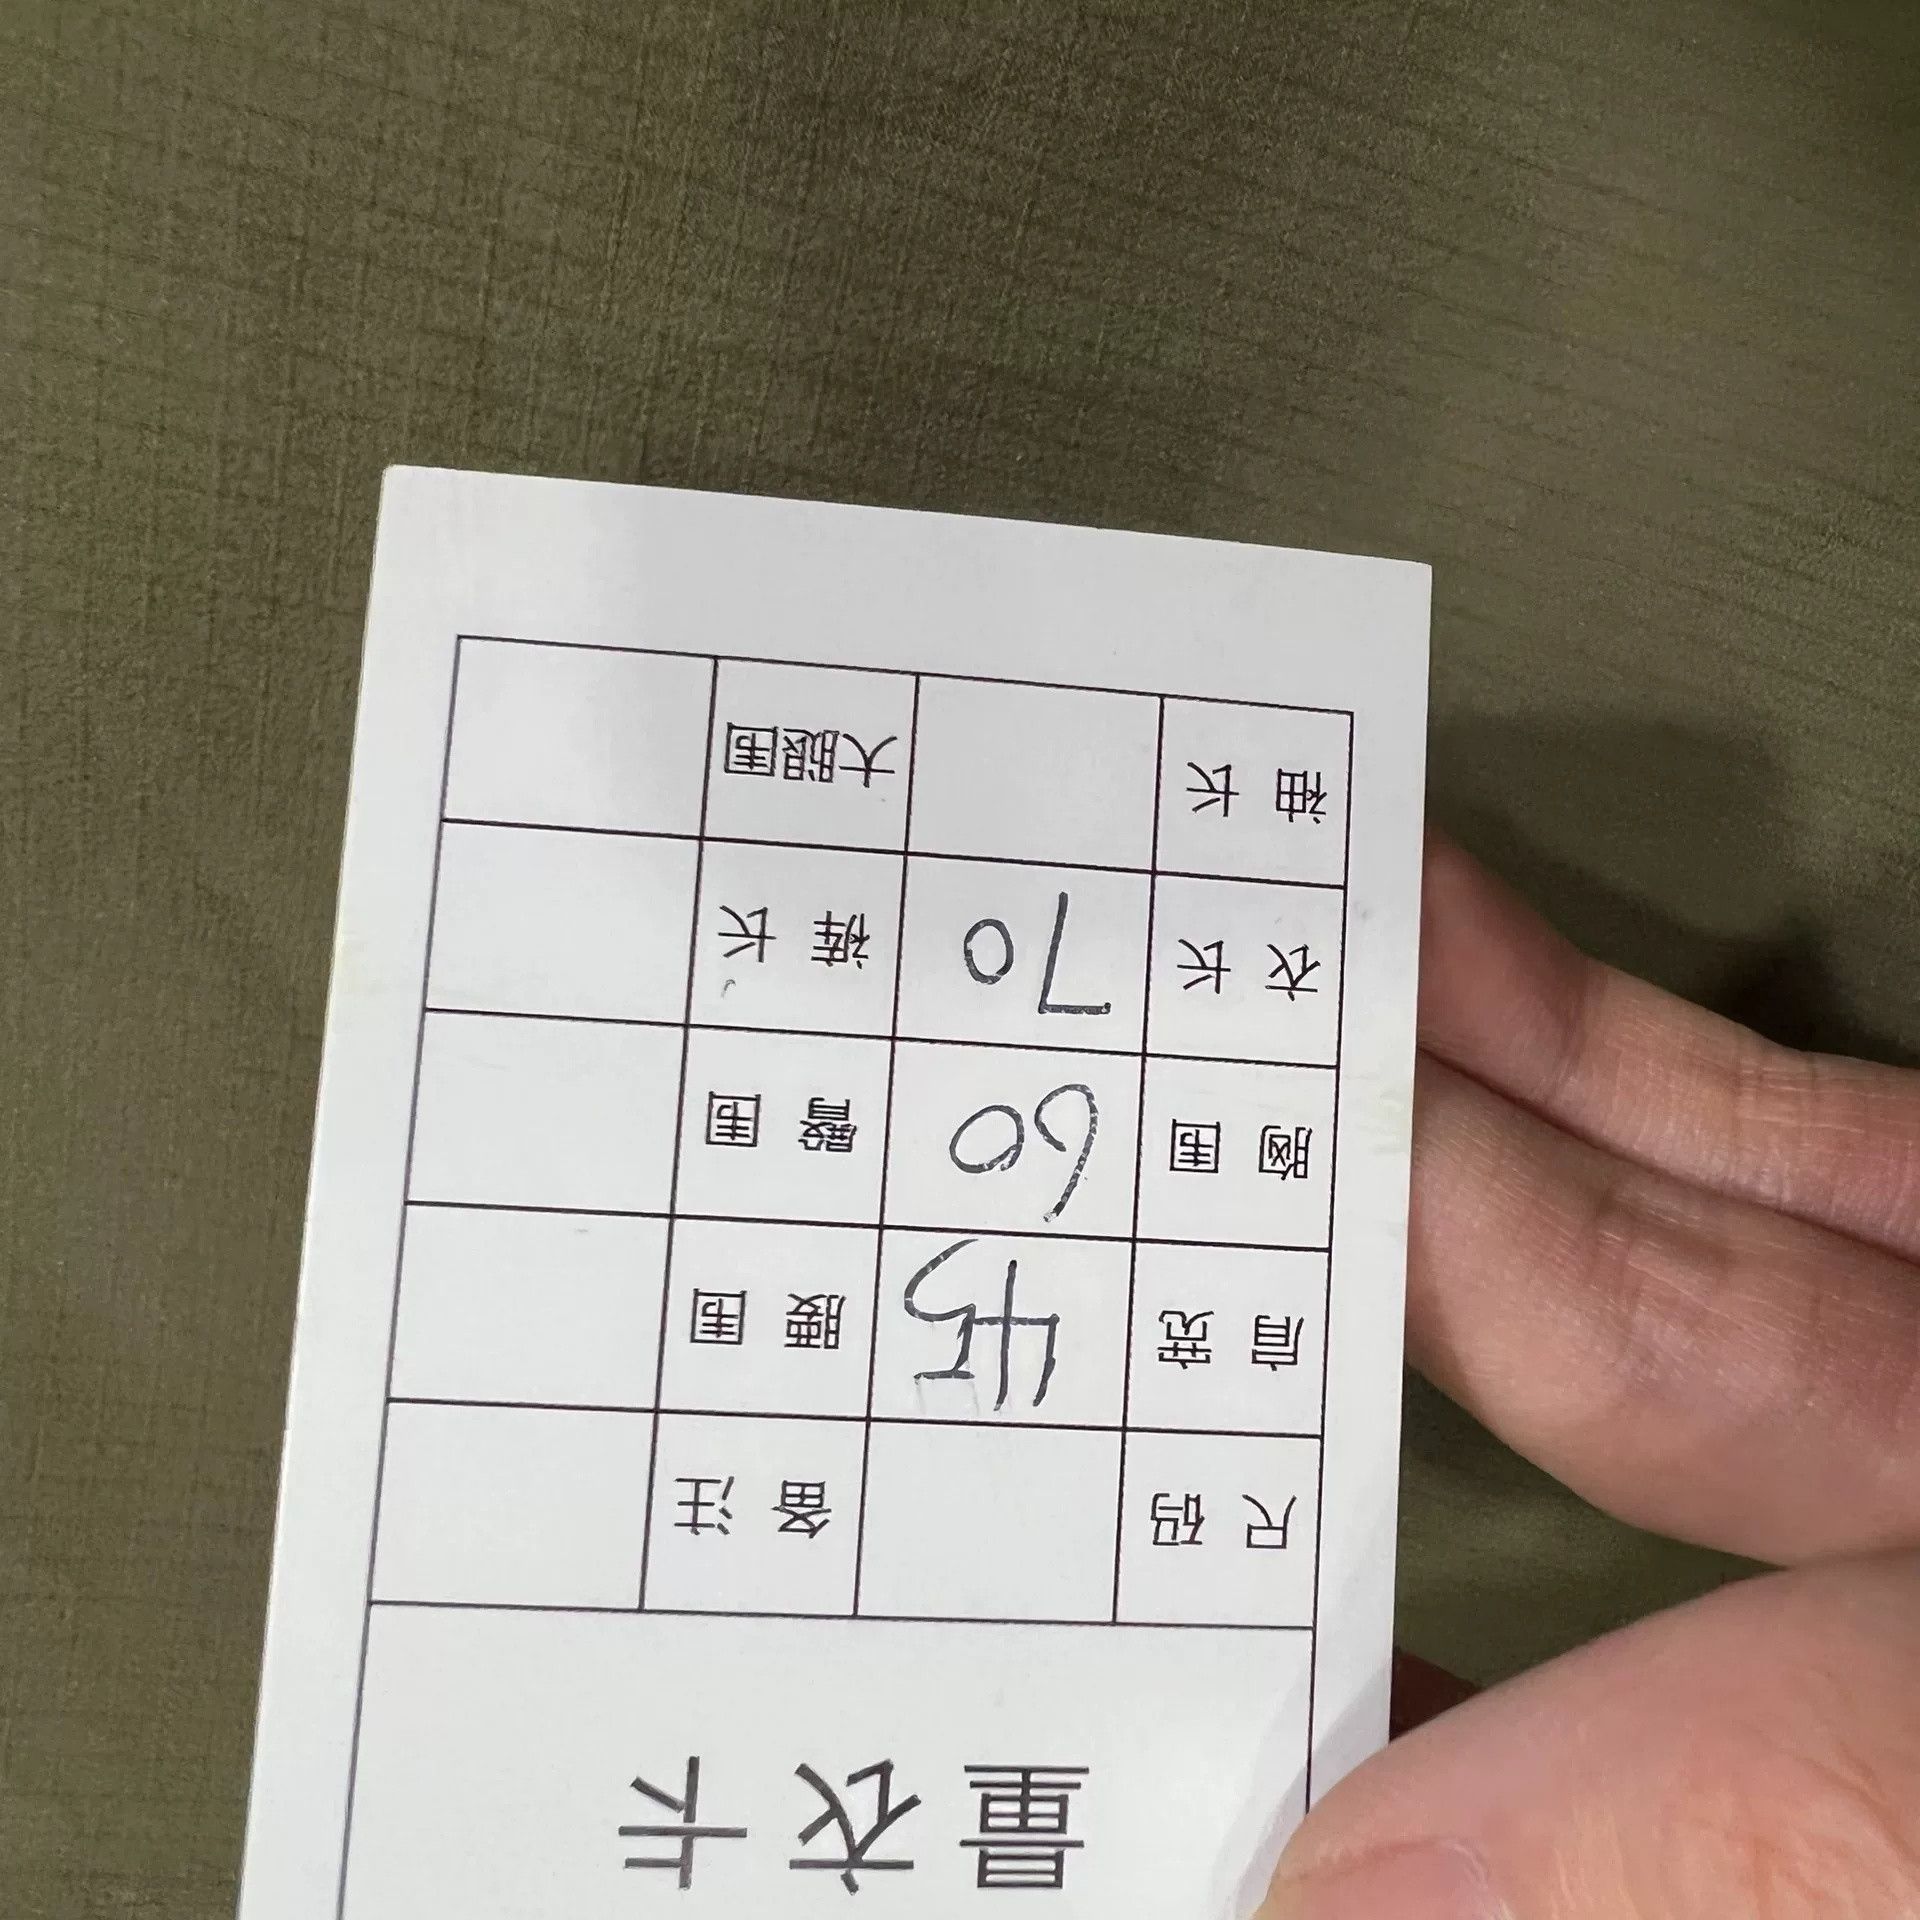 量衣卡
尺码 备注
肩宽 45 腰围
胸围 60 臀围
衣长 70 裤长
袖长 大腿围